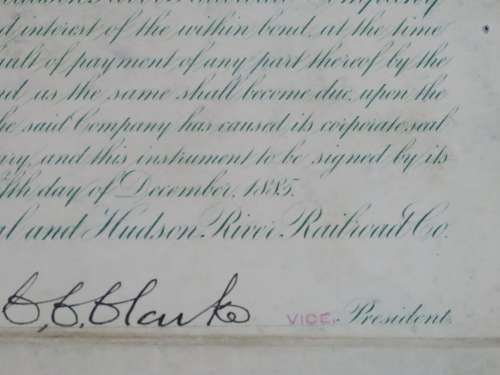 d interest of the within bond, at the time
ault of payment of any part thereof by the
nd as the same shall become due, upon the
he said Company has caused its corporate seal
ury, and this instrument to be signed by its
fth day of December, 1885.
al and Hudson River Railroad Co.
C. C. Clarke VICE- President.